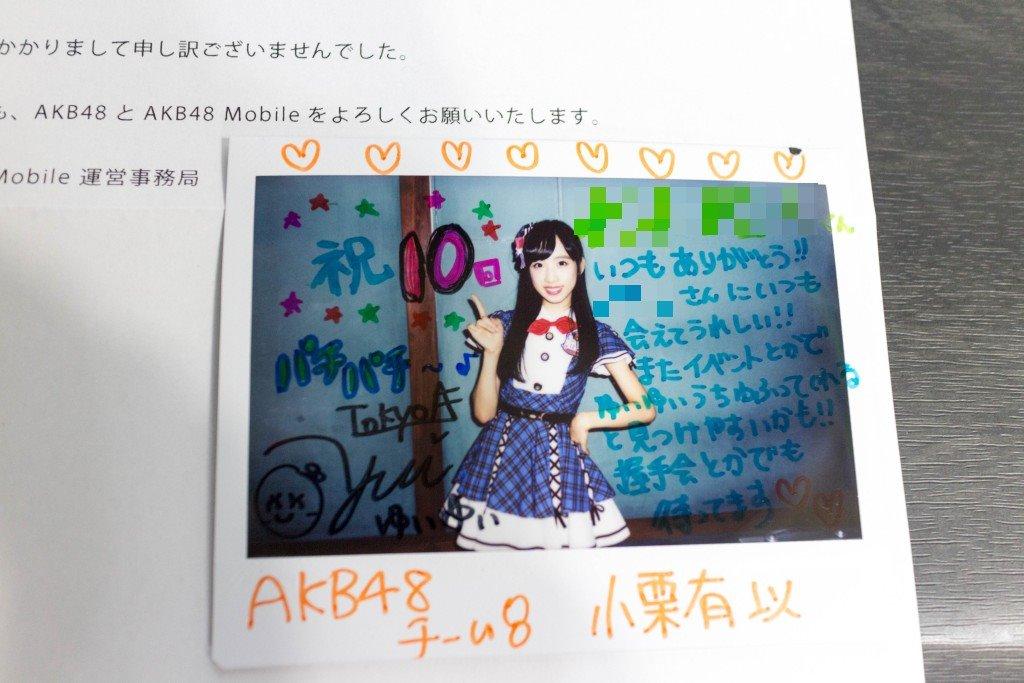 かかりまして申し訳ございませんでした。
も、AKB48 と AKB48 Mobile をよろしくお願いいたします。
Mobile 運営事務局
祝10回
パチパチ〜♪
Tokyo
Yui
ゆいゆい
さん
いつもありがとう!!
さんにいつも
会えてうれしい!!
またイベントとかで
ゆいゆいうちわふってくれる
と見つけやすいかも!!
握手会とかでも
待ってます
AKB48
チーム8
小栗有以